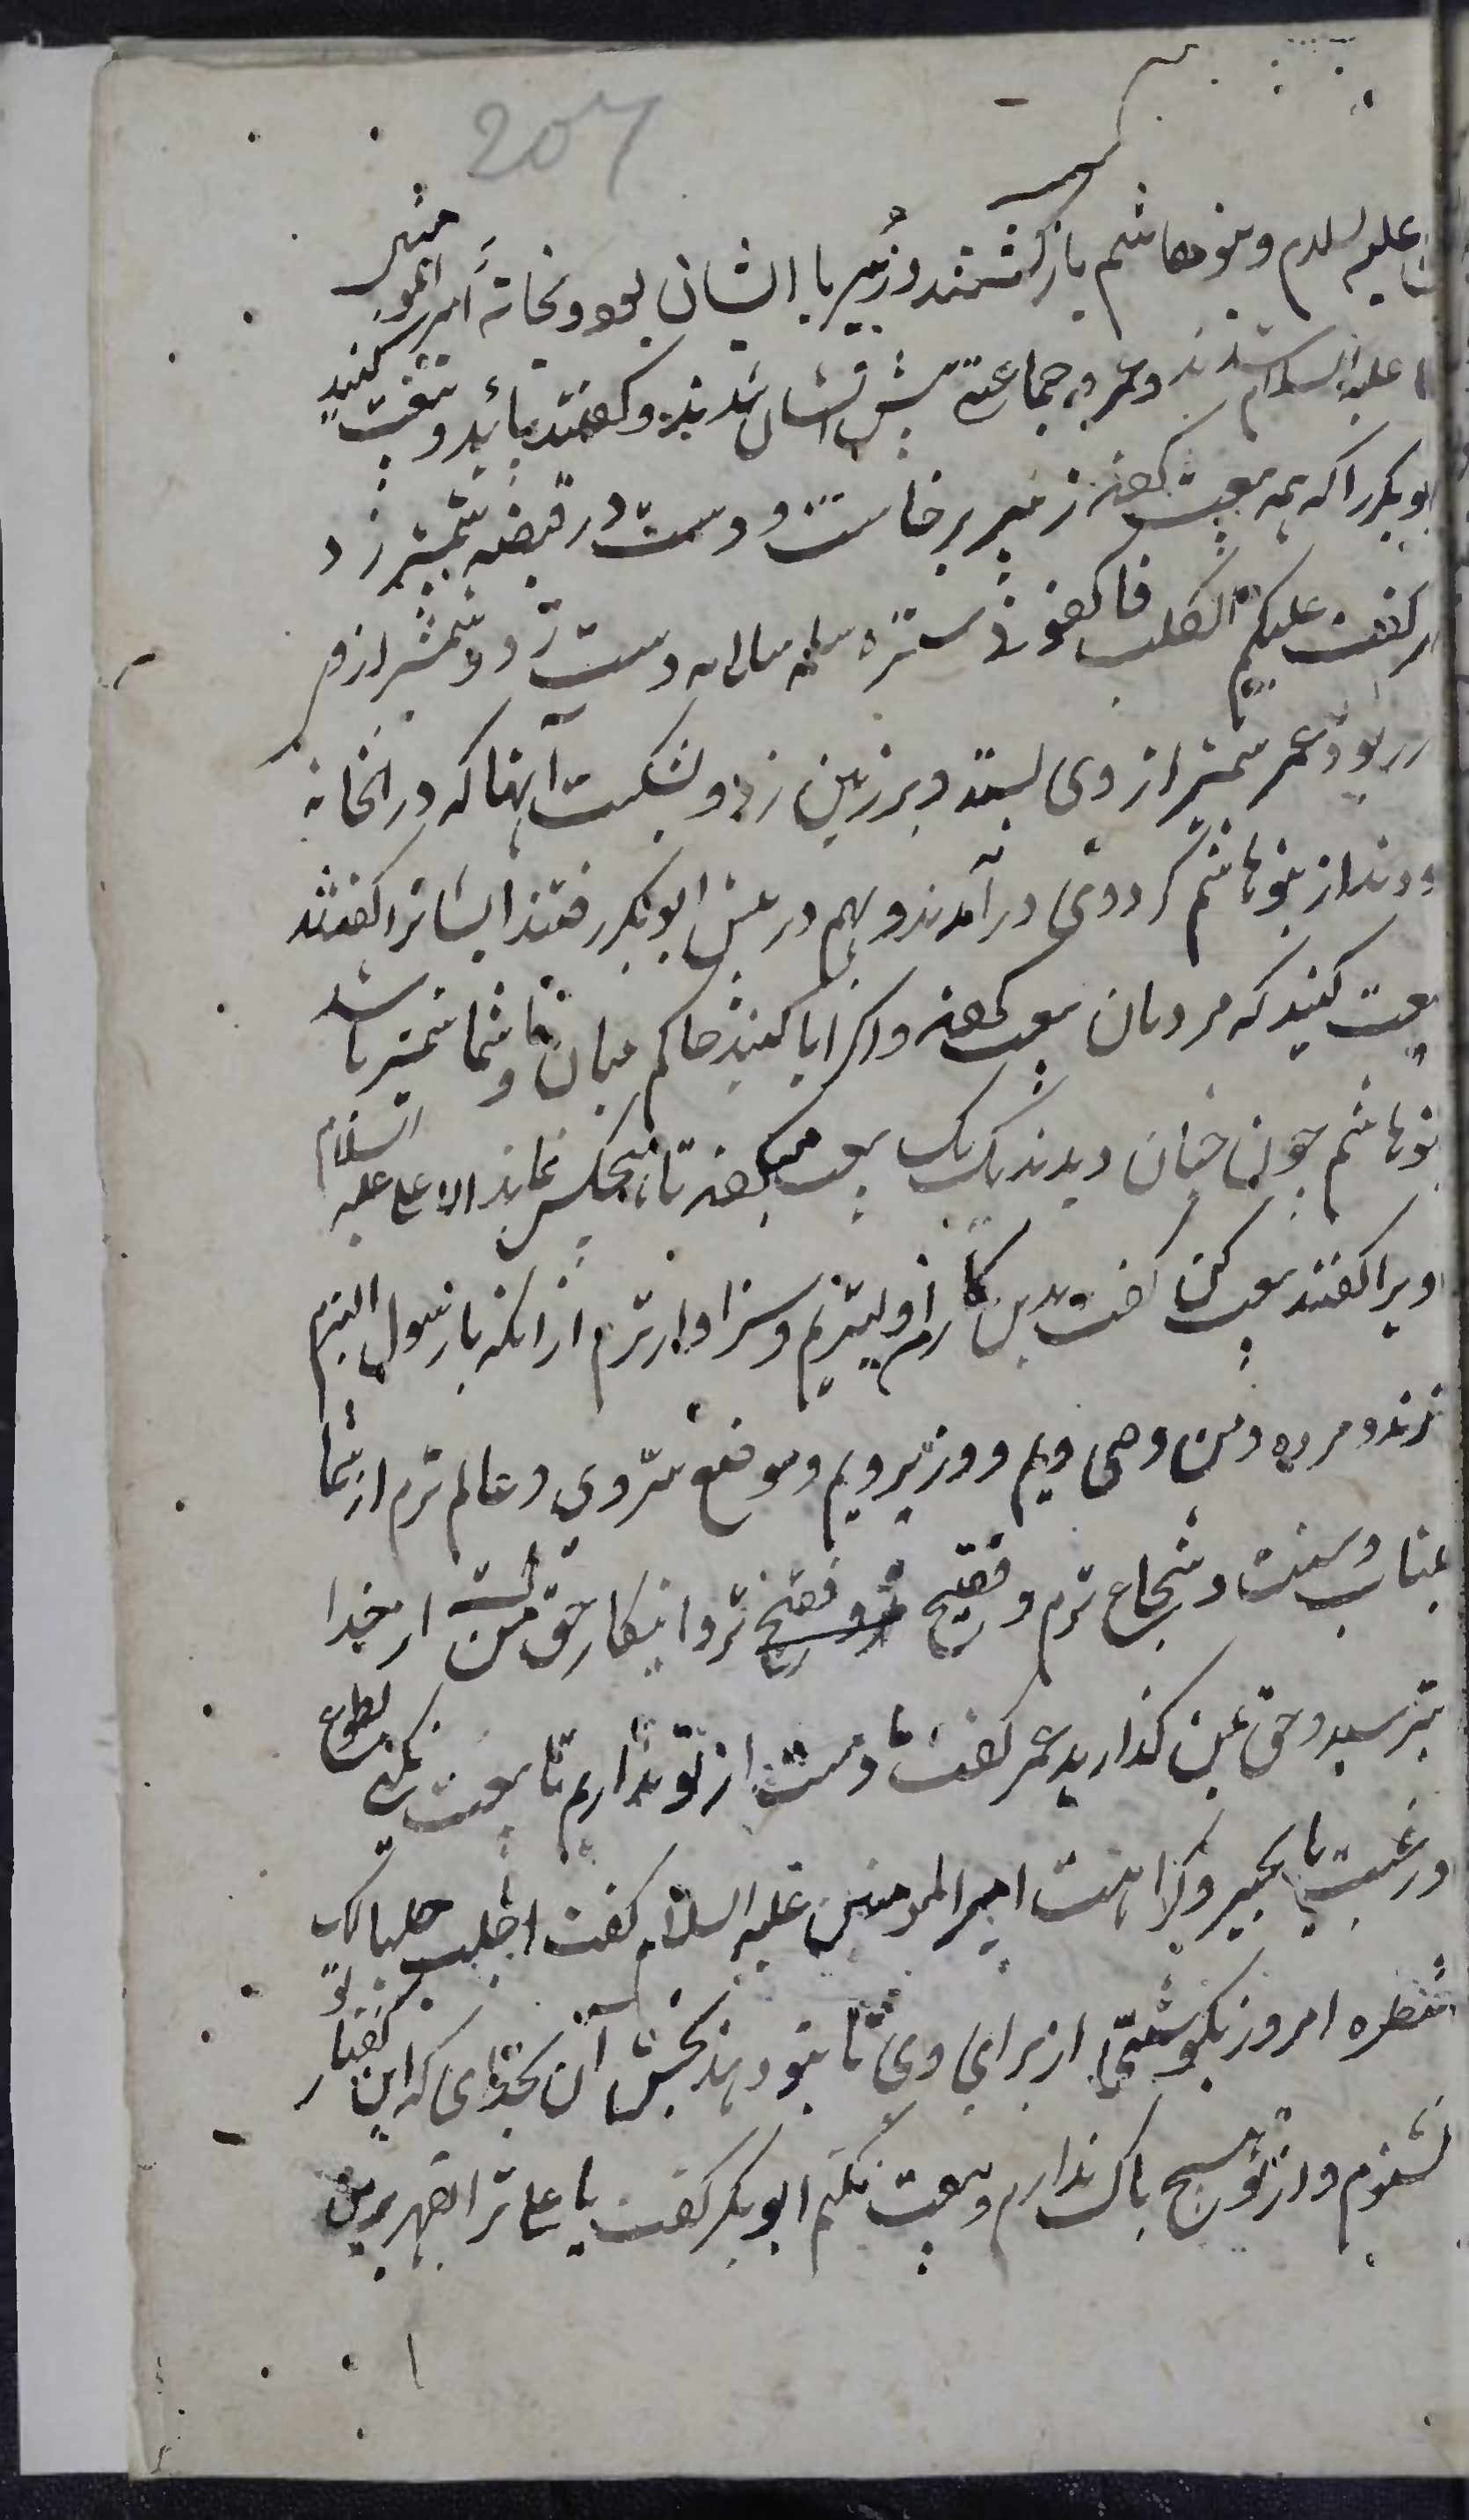 207
علیه السلام و بنو هاشم باز گشتند و زُبیر با ایشان بود و بخانهٔ امیر المومنین
علیه السلام شدند و عمر و جماعتی پیش ایشان شدند و گفتند بیائید و بیعت کنید
ابوبکر را که همه بیعت کردند زبیر برخاست و دست در قبضه شمشیر زد
گفت علیکم الکلب فاکفونی شره سلمه دست زد و شمشیر از وی
در ربود و عمر شمشیر از وی بستد و بر زمین زد و بشکست آنها که در آنخانه
بودند از بنو هاشم گرد وی درآمدند و بهم در پیش ابوبکر رفتند ایشانرا گفتند
بیعت کنید که مردمان بیعت کردند و اگر ابا کنید حاکم میان ما و شما شمشیر باشد
بنو هاشم چون چنان دیدند یک یک بیعت میکردند تا هیچکس نماند الا علی علیه السلام
ویرا گفتند بیعت کن گفت من بدین کار اولیترم و سزاوارترم از آنکه با رسول الیترم
زنده و مرده و من وصی ویم و وزیر ویم و موضع سرّ وی و عالم ترم از شما
بکتاب و سنت و شجاع ترم و فصیح تر و اینکار حق من است از خدا
بترسید و حق بمن گذارید عمر گفت ما دست از تو نداریم تا بیعت نکنی بطوع
و رغبت یا بجبر و کراهت امیر المومنین علیه السلام گفت احلب حلبا لک
شطره امروز بکوشی از برای وی تا بتو دهد بخش آن بخدای که این گفتار تو
نشنوم و از تو هیچ باک ندارم و بیعت نکنم ابوبکر گفت یا علی ترا بقهر برین